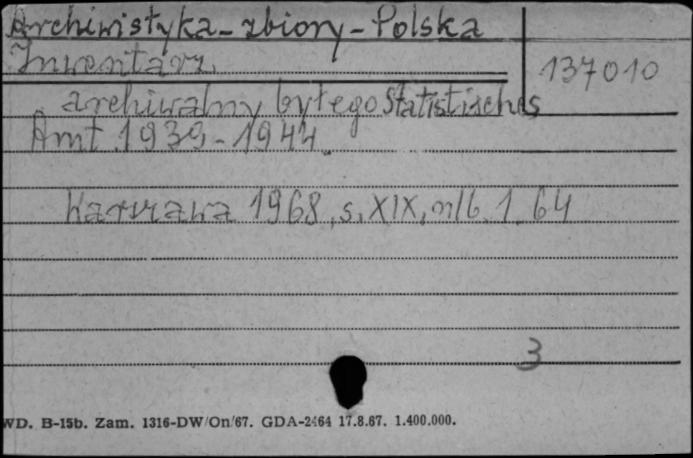 Archiwistyka - zbiory - Polska
Inwentarz
137010
archiwalny byłego Statistisches
Amt 1939-1944.
Warszawa 1968, s. XIX, nlb. 1. 64
3
WD. B-15b. Zam. 1316-DW/On/67. GDA-2464 17.8.67. 1.400.000.